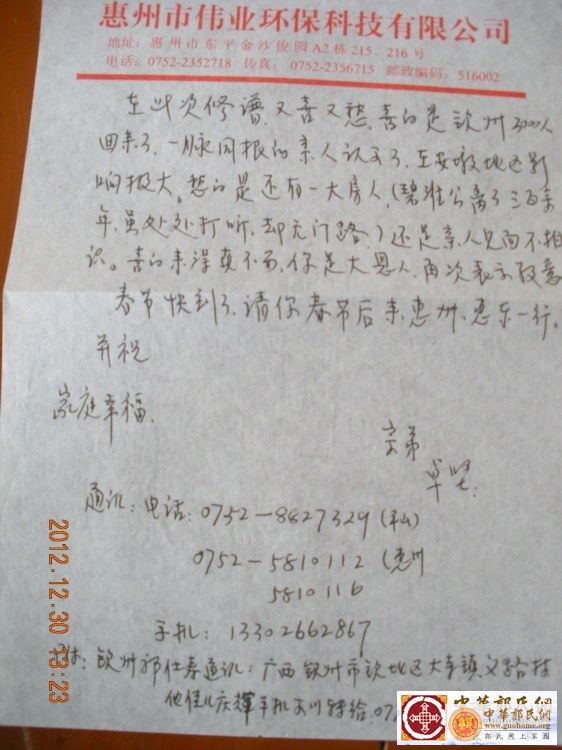 惠州市伟业环保科技有限公司
地址：惠州市东平金沙俊园A2栋215、216号
电话：0752-2352718 传真：0752-2356715 邮政编码：516002
在此次修谱，又喜又愁，喜的是钦州3000人
回来了，一脉同根的亲人认了，在安墩地区影
响极大。愁的是还有一大房人，（碧淮公离了三百余
年，虽处处打听，却无门路）还是亲人见面不相
识。喜的来得真不易，你是大恩人，再次表示敬意
春节快到了，请你春节后来惠州、惠东一行。
并祝
家庭幸福。
宗弟
卓坚
通讯：电话：0752-8827329（
0752-5810112（惠州
5810116
手机：13302662867
附：钦州郭仕寿通讯：广西钦州市钦北区大寺镇
他侄儿庆辉手机
2012.12.30 13:23
中华郭氏网
中華郭氏網
郭氏网上家园